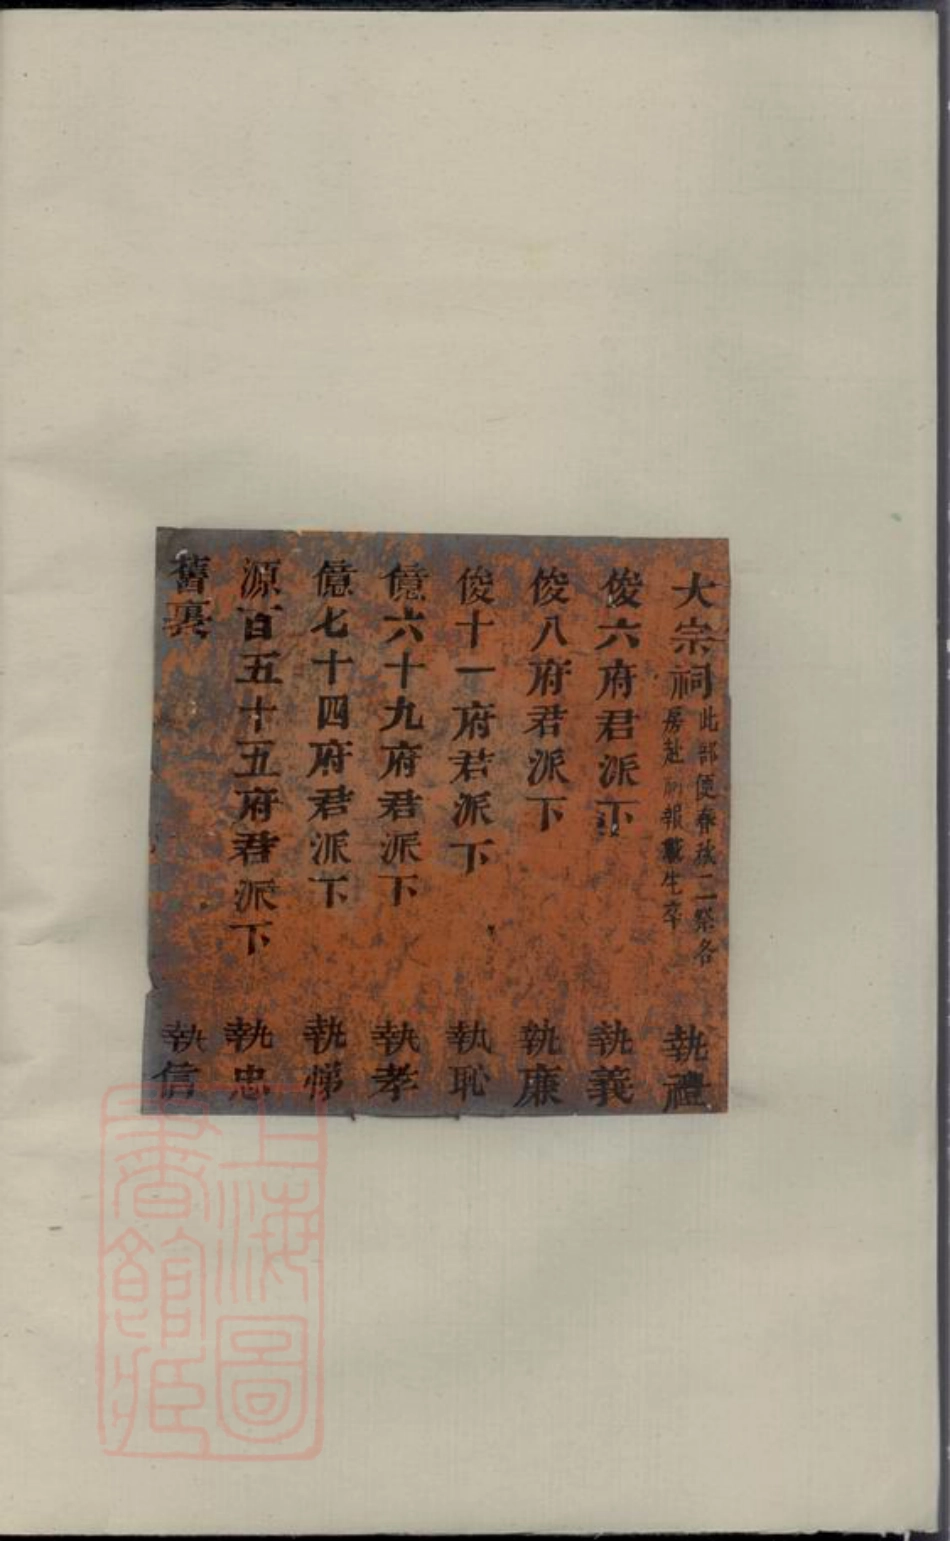 大宗祠 此部便春秋二祭各房赴祠報載生卒 執禮
俊六府君派下 執義
俊八府君派下 執廉
俊十一府君派下 執恥
億六十九府君派下 執孝
億七十四府君派下 執悌
源百五十五府君派下 執忠
舊裏 執信
上海圖
書館藏